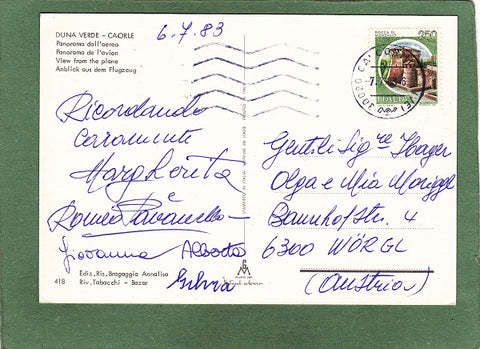 DUNA VERDE - CAORLE
Panorama dall'aereo
Panorama de l'avion
View from the plane
Anblick aus dem Flugzeug
6.7.83
250
ITALIA
30020
Ricordando
caramente
Margherita
e
Romeo Pavanello
Giovanna Alberto
Silvia
Ediz. Ris. Bragaggia Annalisa
418 Riv. Tabacchi - Bazar
Gentili Sig.re Hager
Olga e Mia
Bannhofstr. 4
6300 WÖRGL
(Austria)